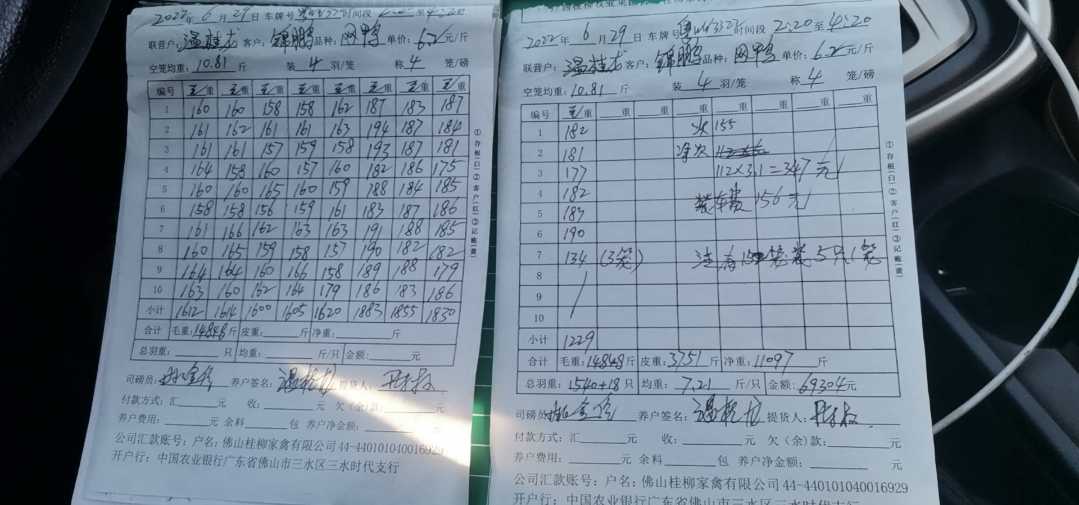 2022年6月29日 车牌号 时间段 至4:20
联营户: 温桂龙 客户: 锦鹏 品种: 网鸭 单价: 6.2元/斤
空笼均重: 10.81斤 装 4 羽/笼 称 4 笼/磅
编号 毛/重 毛/重 毛/重 毛/重 毛/重 毛/重 毛/重 毛/重
1 160 160 158 158 162 187 183 187
2 161 162 161 161 163 194 187 184
3 161 161 157 159 158 193 187 181
4 164 158 160 157 160 182 186 175
5 160 160 165 160 159 188 184 185
6 158 158 156 159 161 183 187 186
7 161 166 162 163 163 191 188 185
8 160 165 159 158 157 190 182 182
9 164 164 160 166 158 189 188 179
10 163 160 162 164 179 186 183 186
小计 1612 1614 1600 1605 1620 1883 1855 1830
合计 毛重: 14848斤 皮重:斤 净重:斤
总羽重:只 均重:斤/只 金额:元
司磅员: 养户签名: 提货人:
付款方式: 汇元 收:元 欠(余)款:
养户费用:元 余料包 养户净金额:
公司汇款账号: 户名: 佛山桂柳家禽有限公司 44-440101040016929
开户行: 中国农业银行广东省佛山市三水区三水时代支行
①存根(白)②客户(红)③记账(黄)
2022年6月29日 车牌号 时间段 2:20至4:20
联营户: 温桂龙 客户: 锦鹏 品种: 网鸭 单价: 6.2元/斤
空笼均重: 10.81斤 装 4 羽/笼 称 4 笼/磅
编号 毛/重 重 重 重 重 重 重 重
1 182 155
2 181
3 177 112×3.1=347元
4 182 装车费 156元
5 183
6 190
7 134 (3笼) 5只1笼
8
9
10
小计 1229
合计 毛重: 14848斤 皮重: 3751斤 净重: 11097斤
总羽重: 1540+18只 均重: 7.21斤/只 金额: 69304元
司磅员: 养户签名: 提货人:
付款方式: 汇元 收:元 欠(余)款:
养户费用:元 余料包 养户净金额:
公司汇款账号: 户名: 佛山桂柳家禽有限公司 44-440101040016929
开户行: 中国农业银行广东省佛山市三水区三水时代支行
①存根(白)②客户(红)③记账(黄)